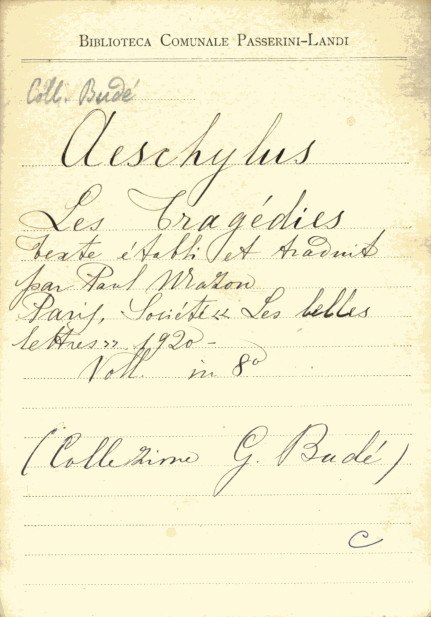 BIBLIOTECA COMUNALE PASSERINI-LANDI
Coll. Budé
Aeschylus
Les Tragédies
texte établi et traduit
par Paul Mazon
Paris, Société « Les belles
lettres » 1920 -
Voll. in 8°
(Collezione G. Budé)
C